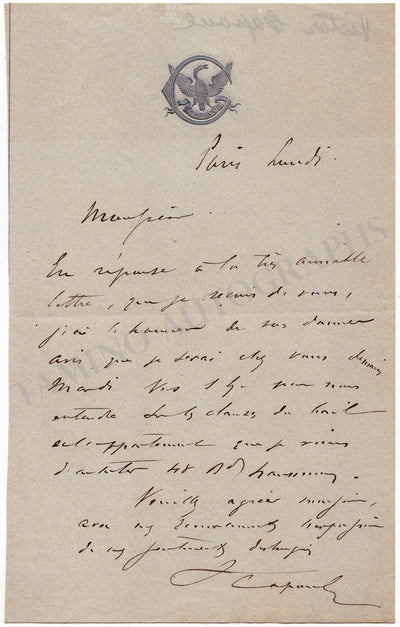 Paris Lundi.
Monsieur
En réponse à la très aimable
lettre, que je reçois de vous,
j'ai l'honneur de vous donner
avis que je serai chez vous demain
Mardi vers 1 h pour nous
entendre sur les clauses du bail
de l'appartement que je viens
d'arrêter 48 Bd Haussmann.
Veuillez agréer monsieur,
avec mes remerciements l'expression
de mes sentiments distingués
V Capoul
TAMINO AUTOGRAPHS
Victor Capoul